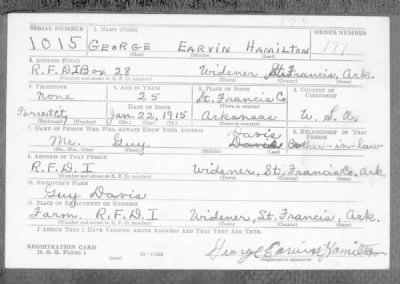 SERIAL NUMBER 1. NAME (Print) ORDER NUMBER
1015 GEORGE EARVIN HAMILTON 177
(First) (Middle) (Last)
2. ADDRESS (Print)
R.F.D.1 Box 28 Widener, St. Francis, Ark.
(Number and street or R. F. D. number) (Town) (County) (State)
3. TELEPHONE 4. AGE IN YEARS 5. PLACE OF BIRTH 6. COUNTRY OF CITIZENSHIP
None 25 St. Francis Co.
DATE OF BIRTH
Jan. 22, 1915 Arkansas U.S.A.
(Exchange) (Number) (Mo.) (Day) (Yr.) (State or country)
7. NAME OF PERSON WHO WILL ALWAYS KNOW YOUR ADDRESS 8. RELATIONSHIP OF THAT PERSON
Davis
Mr. Guy Davis Brother-in-law
(Mr., Mrs., Miss) (First) (Middle) (Last)
9. ADDRESS OF THAT PERSON
R.F.D. I Widener, St. Francis Co. Ark.
(Number and street or R. F. D. number) (Town) (County) (State)
10. EMPLOYER'S NAME
Guy Davis
11. PLACE OF EMPLOYMENT OR BUSINESS
Farm. R.F.D. I Widener, St. Francis, Ark.
(Number and street or R. F. D. number) (Town) (County) (State)
I AFFIRM THAT I HAVE VERIFIED ABOVE ANSWERS AND THAT THEY ARE TRUE.
REGISTRATION CARD
D. S. S. Form 1 George Earvin Hamilton
(Registrant's signature)